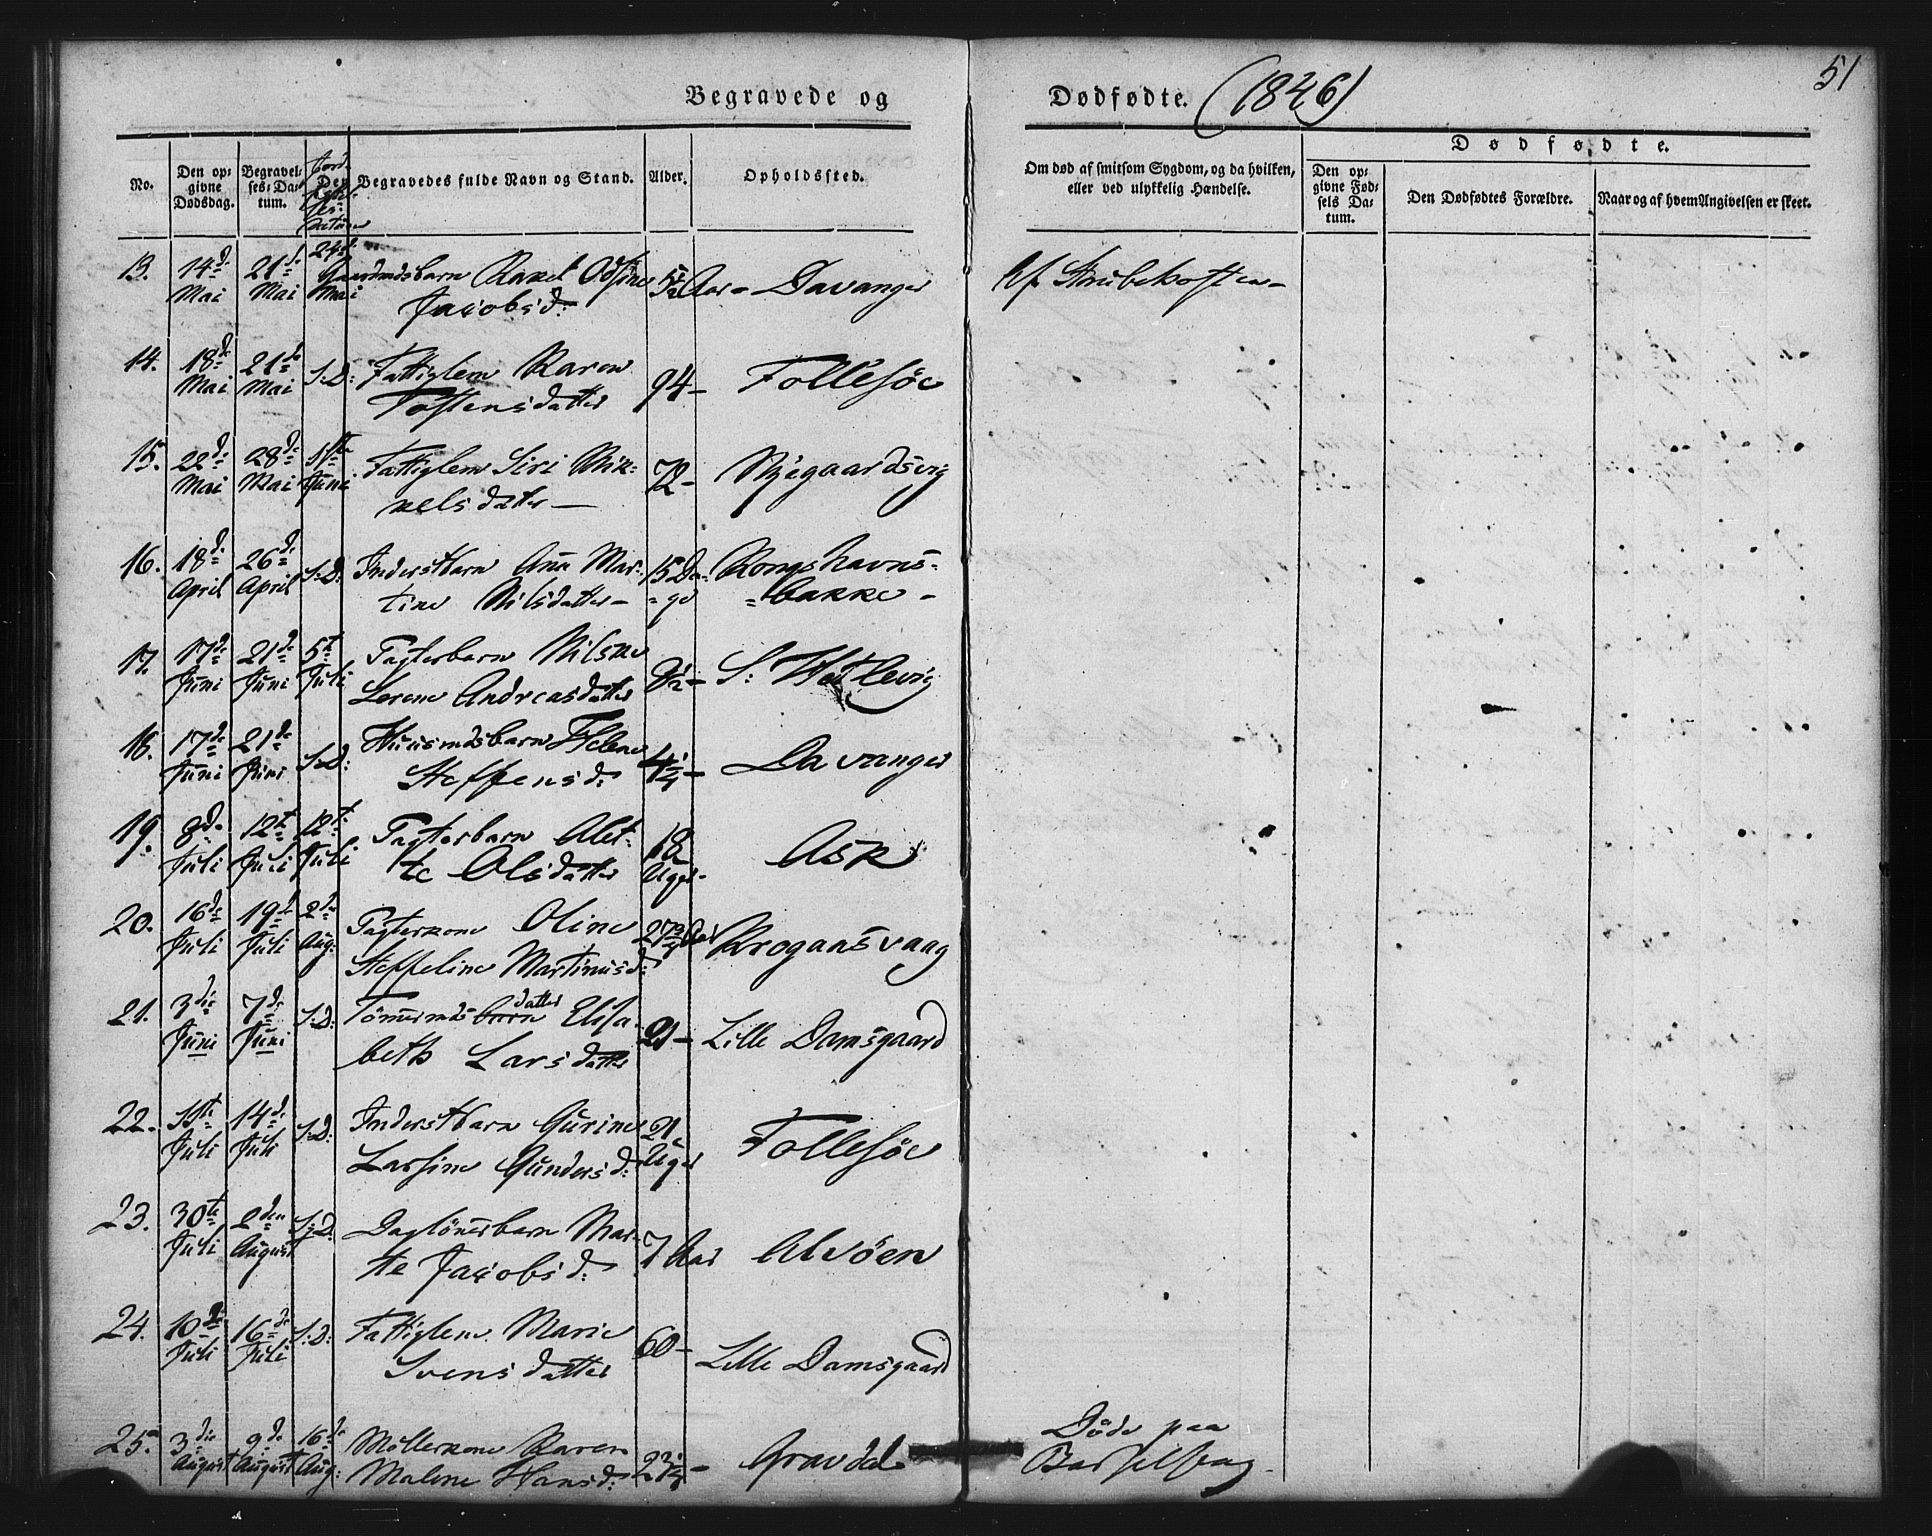 51
Begravede og Dødfødte. (1846)
No.
Den op-
givne
Dødsdag.
Begravel-
ses-Da-
tum.
Jord-
Begravedes fulde Navn og Stand.
Alder.
Opholdssted.
Om død af smitsom Sygdom, og da hvilken,
eller ved ulykkelig Hændelse.
Dødfødte.
Den op-
givne Fød-
sels Da-
tum.
Den Dødfødtes Forældre.
Naar og af hvem Angivelsen er skeet.
13. 14d Mai 21d Mai 24d Mai Gaardmdsbarn Rakel Odsine
Jacobsd: Aar - Davanger af Strubehosten -
14. 18d Mai 21d Mai S:D: Fattiglem Karen
Tostensdatter 94 - Follesöe
15. 22d Mai 28d Mai Juni Fattiglem Siri Mik-
kelsdatter - 72 - Nygaardsvig
16. 18d April 26d April S:D: Inderstbarn Ana Mar-
tine Nilsdatter - 15 Da-ge Kongshavns-
bakke -
17. 17d Juni 21d Juni 5t Juli Pagterbarn Nilsine
Serene Andreasdatter 1/2 - S: Hetlevig
18. 17d Juni 21d Juni S:D: Huusmdsbarn Helene
Steffensd: 4 1/4 - Davanger
19. 8d Juli 12t Juli 12t Juli Pagterbarn Alet-
te Olsdatter 18 Uger - Ask
20. 16d Juli 19d Juli 2d Aug: Pagterkone Oline
Steffeline Martinusd: 27 3/4 Aar Krogaasvaag
21. 3die Juni 7d Juni S:D: Tömermdsbarn datter Elisa-
beth Larsdatter 21 - Lille Damsgaard
22. 11te Juli 14d Juli S:D: Inderstbarn Gurine
Larsine Gundersd: 21 Uger Follesöe
23. 30te Juli 2den August S:D: Daglönnerbarn Mar-
te Jacobsd: 7 Aar Alvöen
24. 10d Juli 16d Juli S:D: Fattiglem Marie
Svensdatter 60 - Lille Damsgaard
25. 3die August 9d August 16d Aug: Möllerkone Karen
Malene Hansd: 22 1/4 - Gravdal Döde paa
Barselseng -